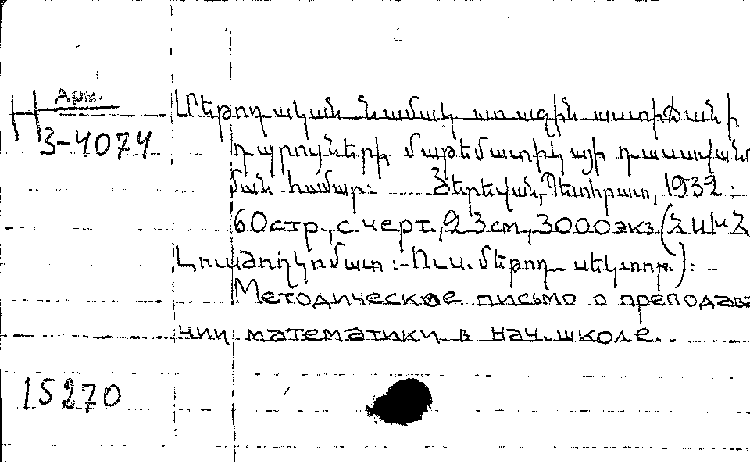 Арм.
3-4074
Մեթոդական նամակ առաջին աստիճանի
դպրոցների մաթեմատիկայի դասավան
ման համար։ Յերեվան, Պետհրատ, 1932։
60стр., с черт., 23см., 3000экз. (ՀՍԽՀ
Լուսժողկոմատ։ Ուս. մեթոդ. սեկտոր)։
Методическое письмо о преподава
нии математики в нач. школе.
15270